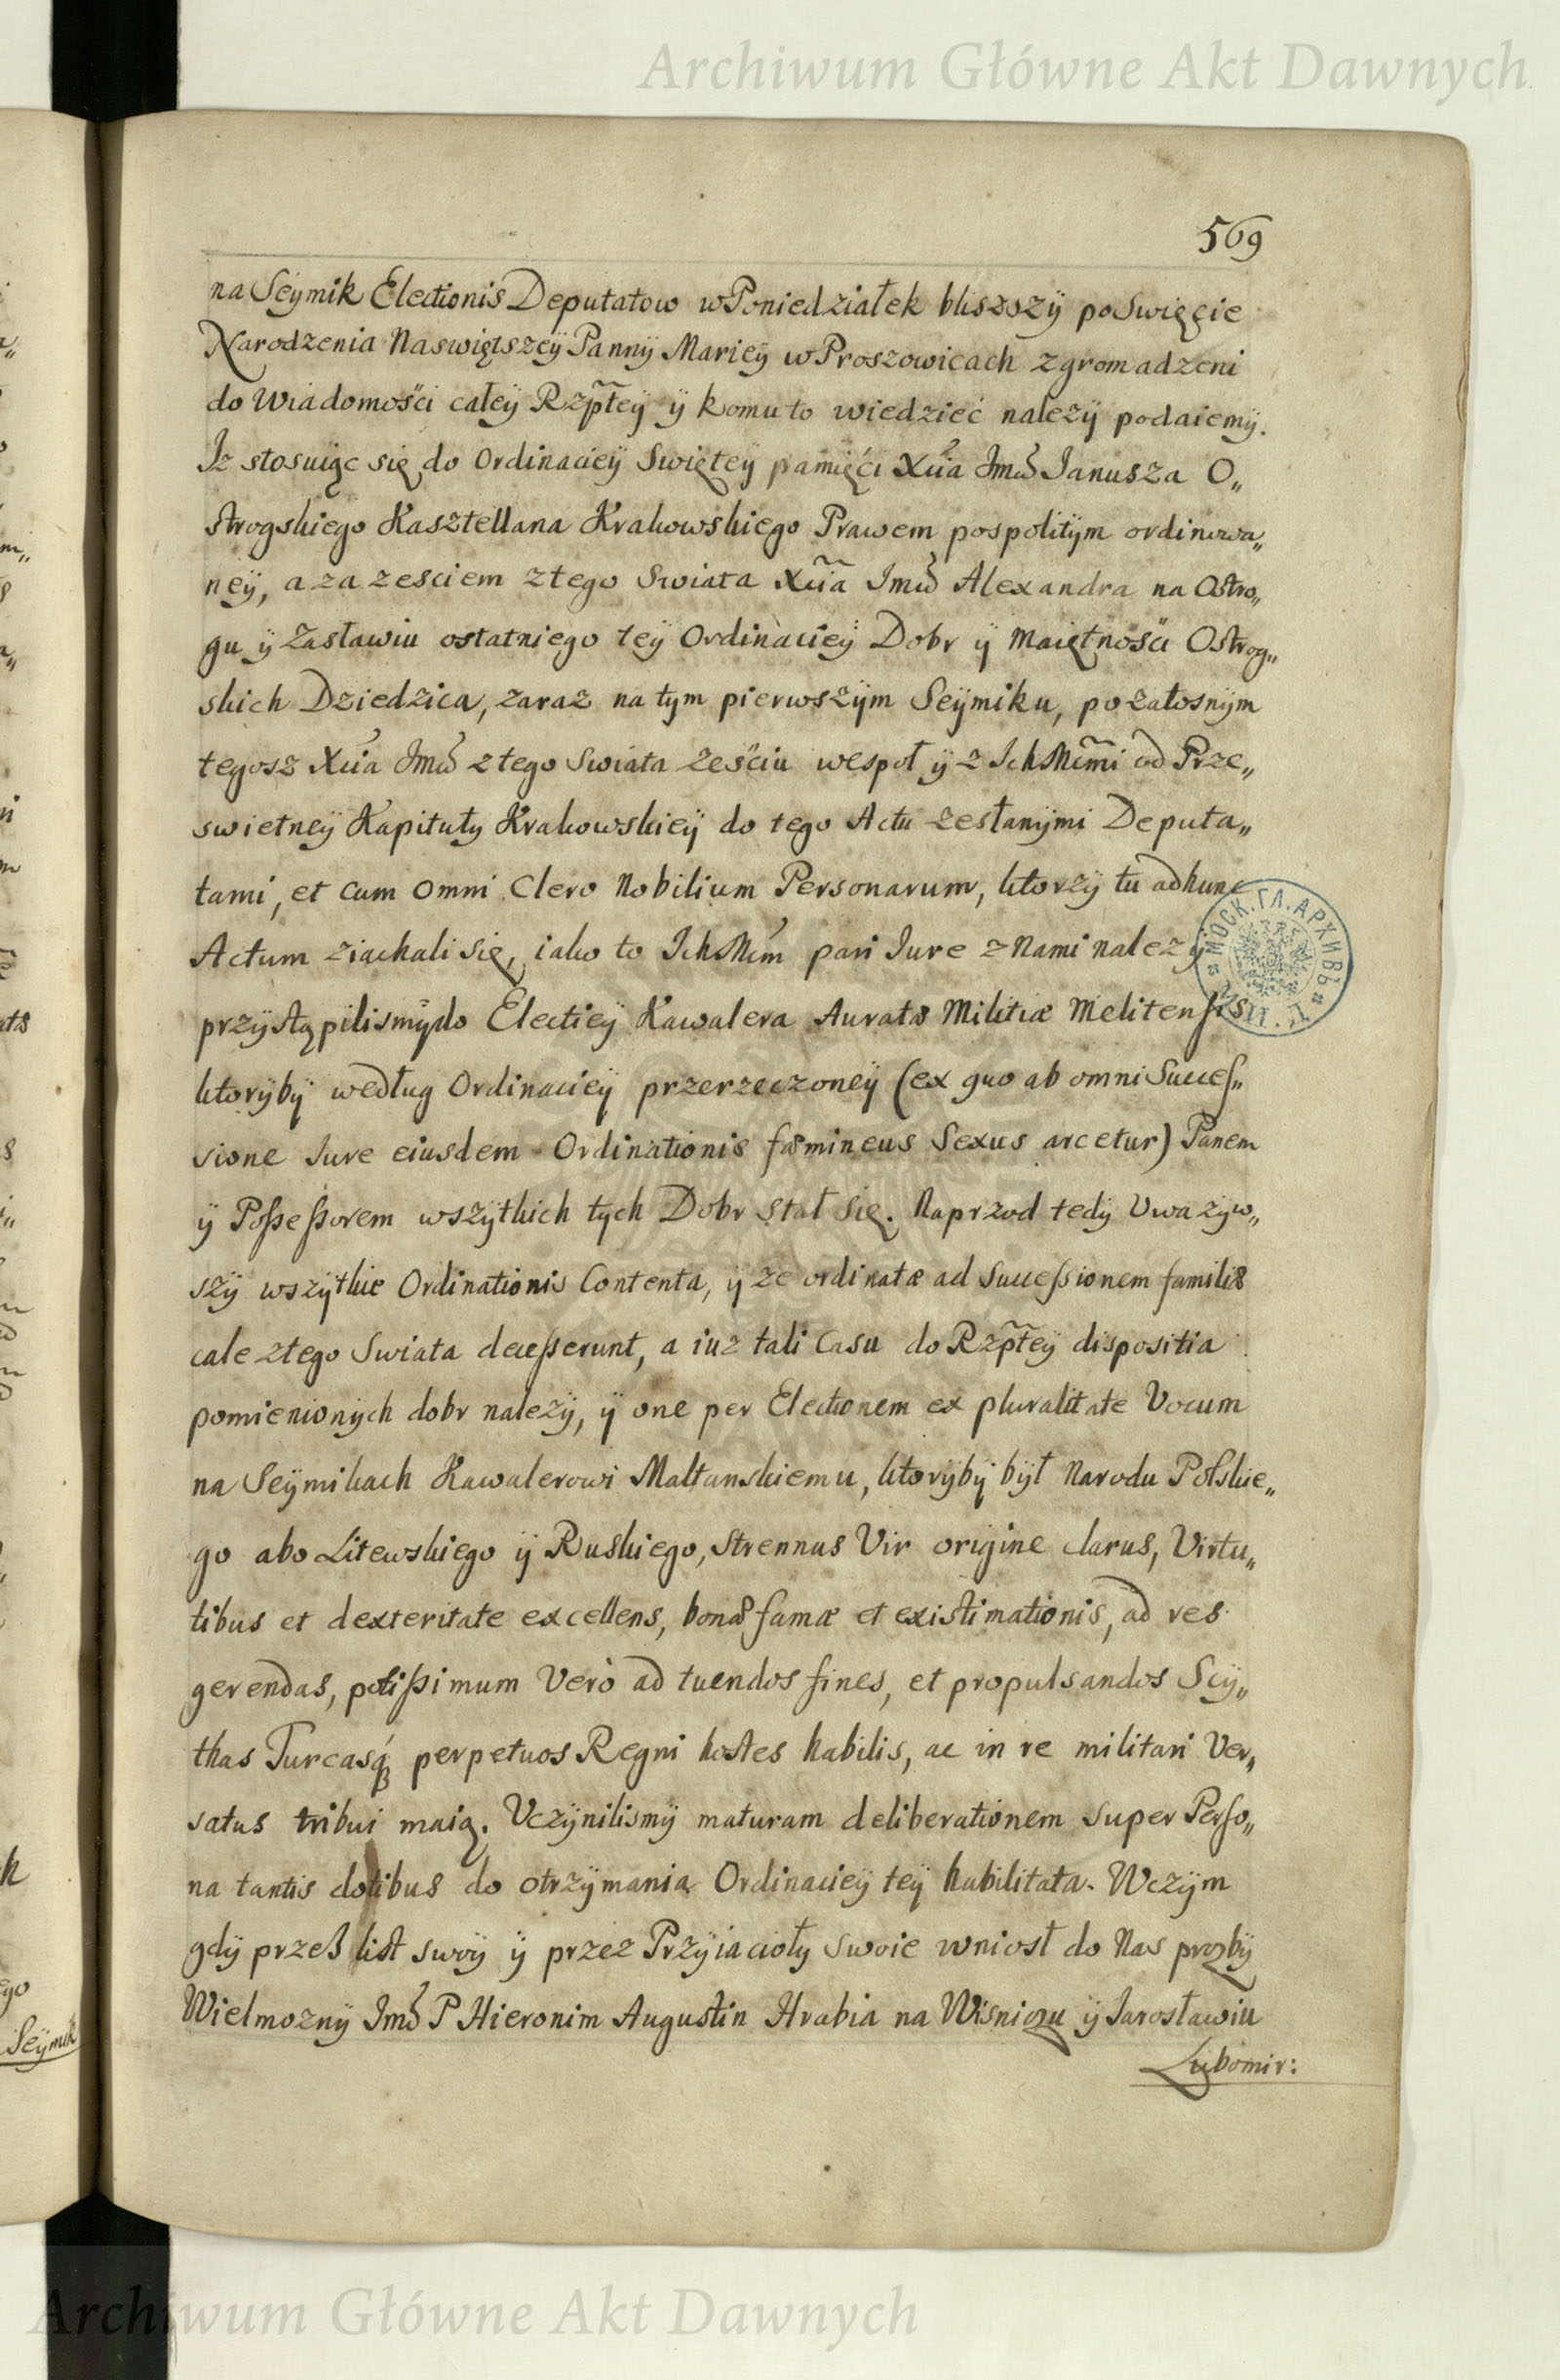 Archiwum Główne Akt Dawnych
569
na Seÿmik Electionis Deputatow w Poniedziałek bliszszÿ po Swięcie
Narodzenia Naswiętszeÿ Pannÿ Marieÿ w Proszowicach zgromadzeni
do Wiadomości całeÿ Rzpteÿ ÿ komu to wiedzieć należÿ podaiemÿ.
Iz stosuiąc się do Ordinacieÿ Swięteÿ pamięći Xcia Jmci Ianusza O„
strogskiego Kasztellana Krakowskiego Prawem pospolitÿm ordinowa„
neÿ, a za zesciem z tego Swiata Xcia Jmci Alexandra na Ostro„
gu ÿ Zasławiu ostatniego teÿ Ordinacieÿ Dobr ÿ Maiętności Ostrog„
skich Dziedzica, zaraz na tym pierwszÿm Seÿmiku, po załosnÿm
tegosz Xcia Jmci z tego SwiataZeściu wespoł ÿ z IchMćmi od Prze„
swietneÿ Kapituły Krakowskieÿ do tego Actu Zesłanÿmi Deputa„
tami, et cum omni Clero Nobilium Personarum, ktorzÿ tu ad hunc
Actum ziachali się, iako to IchMćm pari Iure z Nami należÿ
przÿstąpilismÿ do Electieÿ Kawalera Auratæ Militiæ Melitensis
ktorÿbÿ według Ordinacieÿ przerzeczoneÿ (ex quo ab omni Succes„
sione Iure eiusdem Ordinationis fæmineus Sexus arcetur) Panem
ÿ Possessorem wszÿtkich tych Dobr stał się. Naprzod tedÿ Uważÿw„
szÿ wszÿtkie Ordinationis Contenta, ÿ że ordinatæ ad Successionem familiæ
cale z tego Swiata decesserunt, a iuż tali Casu do Rzptey dispositia
pomienionÿch dobr należÿ, ÿ one per Electionem ex pluralitate Vocum
na Seÿmikach Kawalerowi Maltanskiemu, ktorÿbÿ bÿł Narodu Polskie„
go abo Litewskiego ÿ Ruskiego, strennus Vir origine clarus, Virtu„
tibus et dexteritate excellens, bonæ famæ et existimationis, ad res
gerendas, potissimum Verò ad tuendos fines, et propulsandos Scÿ„
thas Turcasq́ perpetuos Regni hostes habilis, ac in re militari Ver„
satus tribui maią. Uczÿnilismÿ maturam deliberationem super Perso„
na tantis dotibus do otrzÿmania Ordinacieÿ teÿ habilitata. W czÿm
gdÿ przeß list swoÿ ÿ przez Przÿiacioły swoie wniosł do Nas prozbÿ
Wielmoznÿ Jmć P Hieronim Augustin Hrabia na Wisniczu ÿ Iarosławiu
Lubomir:
МОСК. ГЛ. АРХИВЪ
Archiwum Główne Akt Dawnych